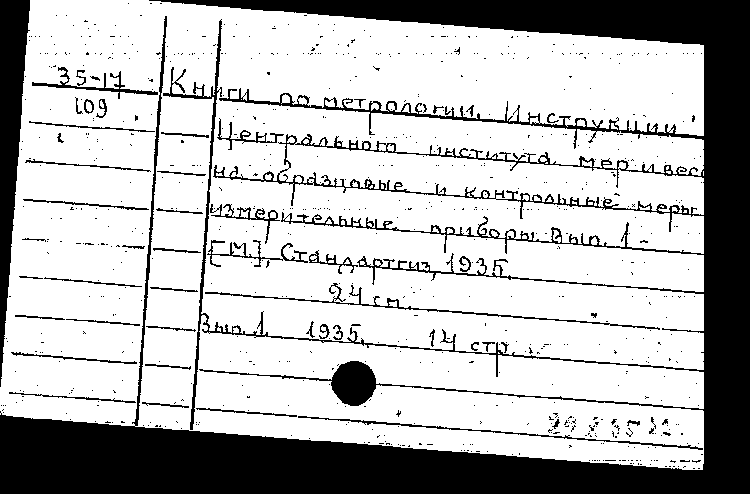 35-17
109
Книги по метрологии. Инструкции
Центрального института мер и весо
на образцовые и контрольные меры
измерительные приборы. Вып. 1-
[М.], Стандартгиз, 1935.
24 см.
Вып. 1. 1935. 14 стр.